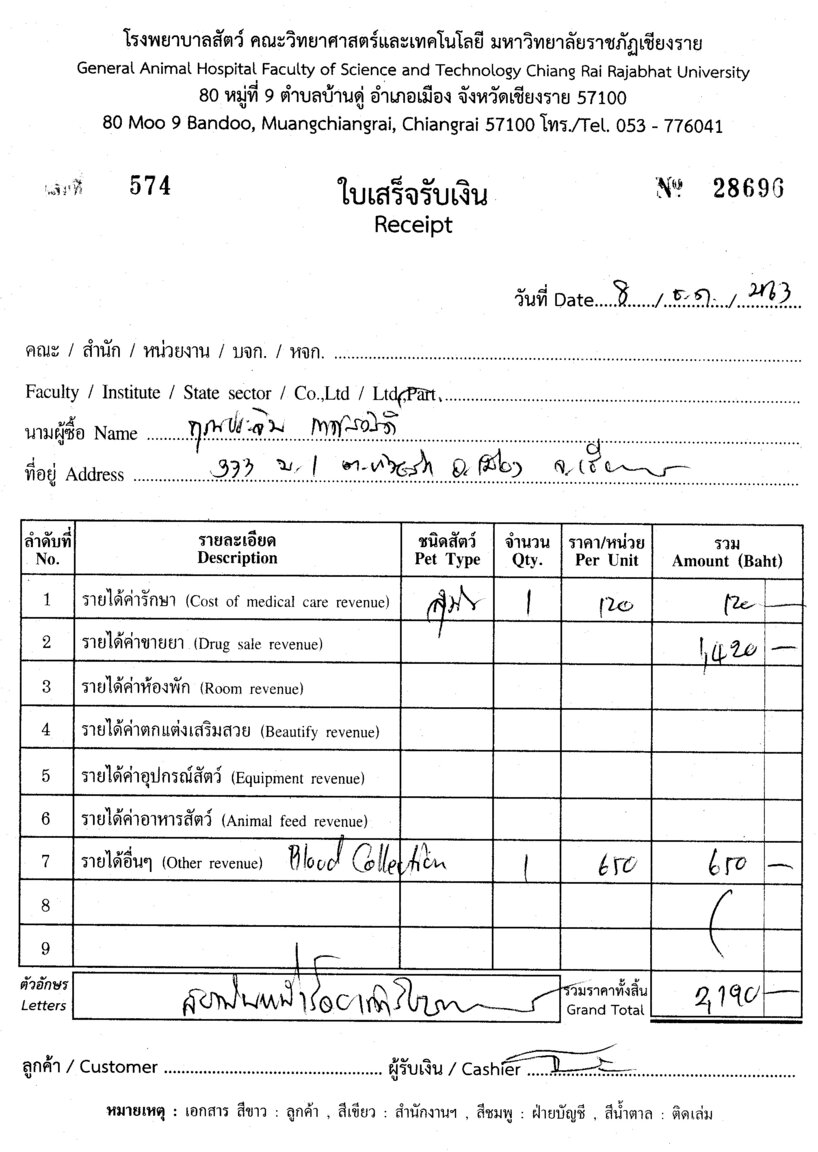 โรงพยาบาลสัตว์ คณะวิทยาศาสตร์และเทคโนโลยี มหาวิทยาลัยราชภัฏเชียงราย
General Animal Hospital Faculty of Science and Technology Chiang Rai Rajabhat University
80 หมู่ที่ 9 ตำบลบ้านดู่ อำเภอเมือง จังหวัดเชียงราย 57100
80 Moo 9 Bandoo, Muangchiangrai, Chiangrai 57100 โทร./Tel. 053 - 776041
เล่มที่ 574 ใบเสร็จรับเงิน Nº 28696
Receipt
วันที่ Date 8 / ธ.ค. / 2563
คณะ / สำนัก / หน่วยงาน / บจก. / หจก.
Faculty / Institute / State sector / Co.,Ltd / Ltd.,Part.
นามผู้ซื้อ Name
ที่อยู่ Address ม.1
ลำดับที่ รายละเอียด ชนิดสัตว์ จำนวน ราคา/หน่วย รวม
No. Description Pet Type Qty. Per Unit Amount (Baht)
1 รายได้ค่ารักษา (Cost of medical care revenue) 1 120 120 —
2 รายได้ค่าขายยา (Drug sale revenue) 1,420 —
3 รายได้ค่าห้องพัก (Room revenue)
4 รายได้ค่าตกแต่งเสริมสวย (Beautify revenue)
5 รายได้ค่าอุปกรณ์สัตว์ (Equipment revenue)
6 รายได้ค่าอาหารสัตว์ (Animal feed revenue)
7 รายได้อื่นๆ (Other revenue) Blood Collection 1 650 650 —
8
9
ตัวอักษร สองพันหนึ่งร้อยเก้าสิบบาท รวมราคาทั้งสิ้น 2,190 —
Letters Grand Total
ลูกค้า / Customer ผู้รับเงิน / Cashier
หมายเหตุ : เอกสาร สีขาว : ลูกค้า , สีเขียว : สำนักงานฯ , สีชมพู : ฝ่ายบัญชี , สีน้ำตาล : ติดเล่ม